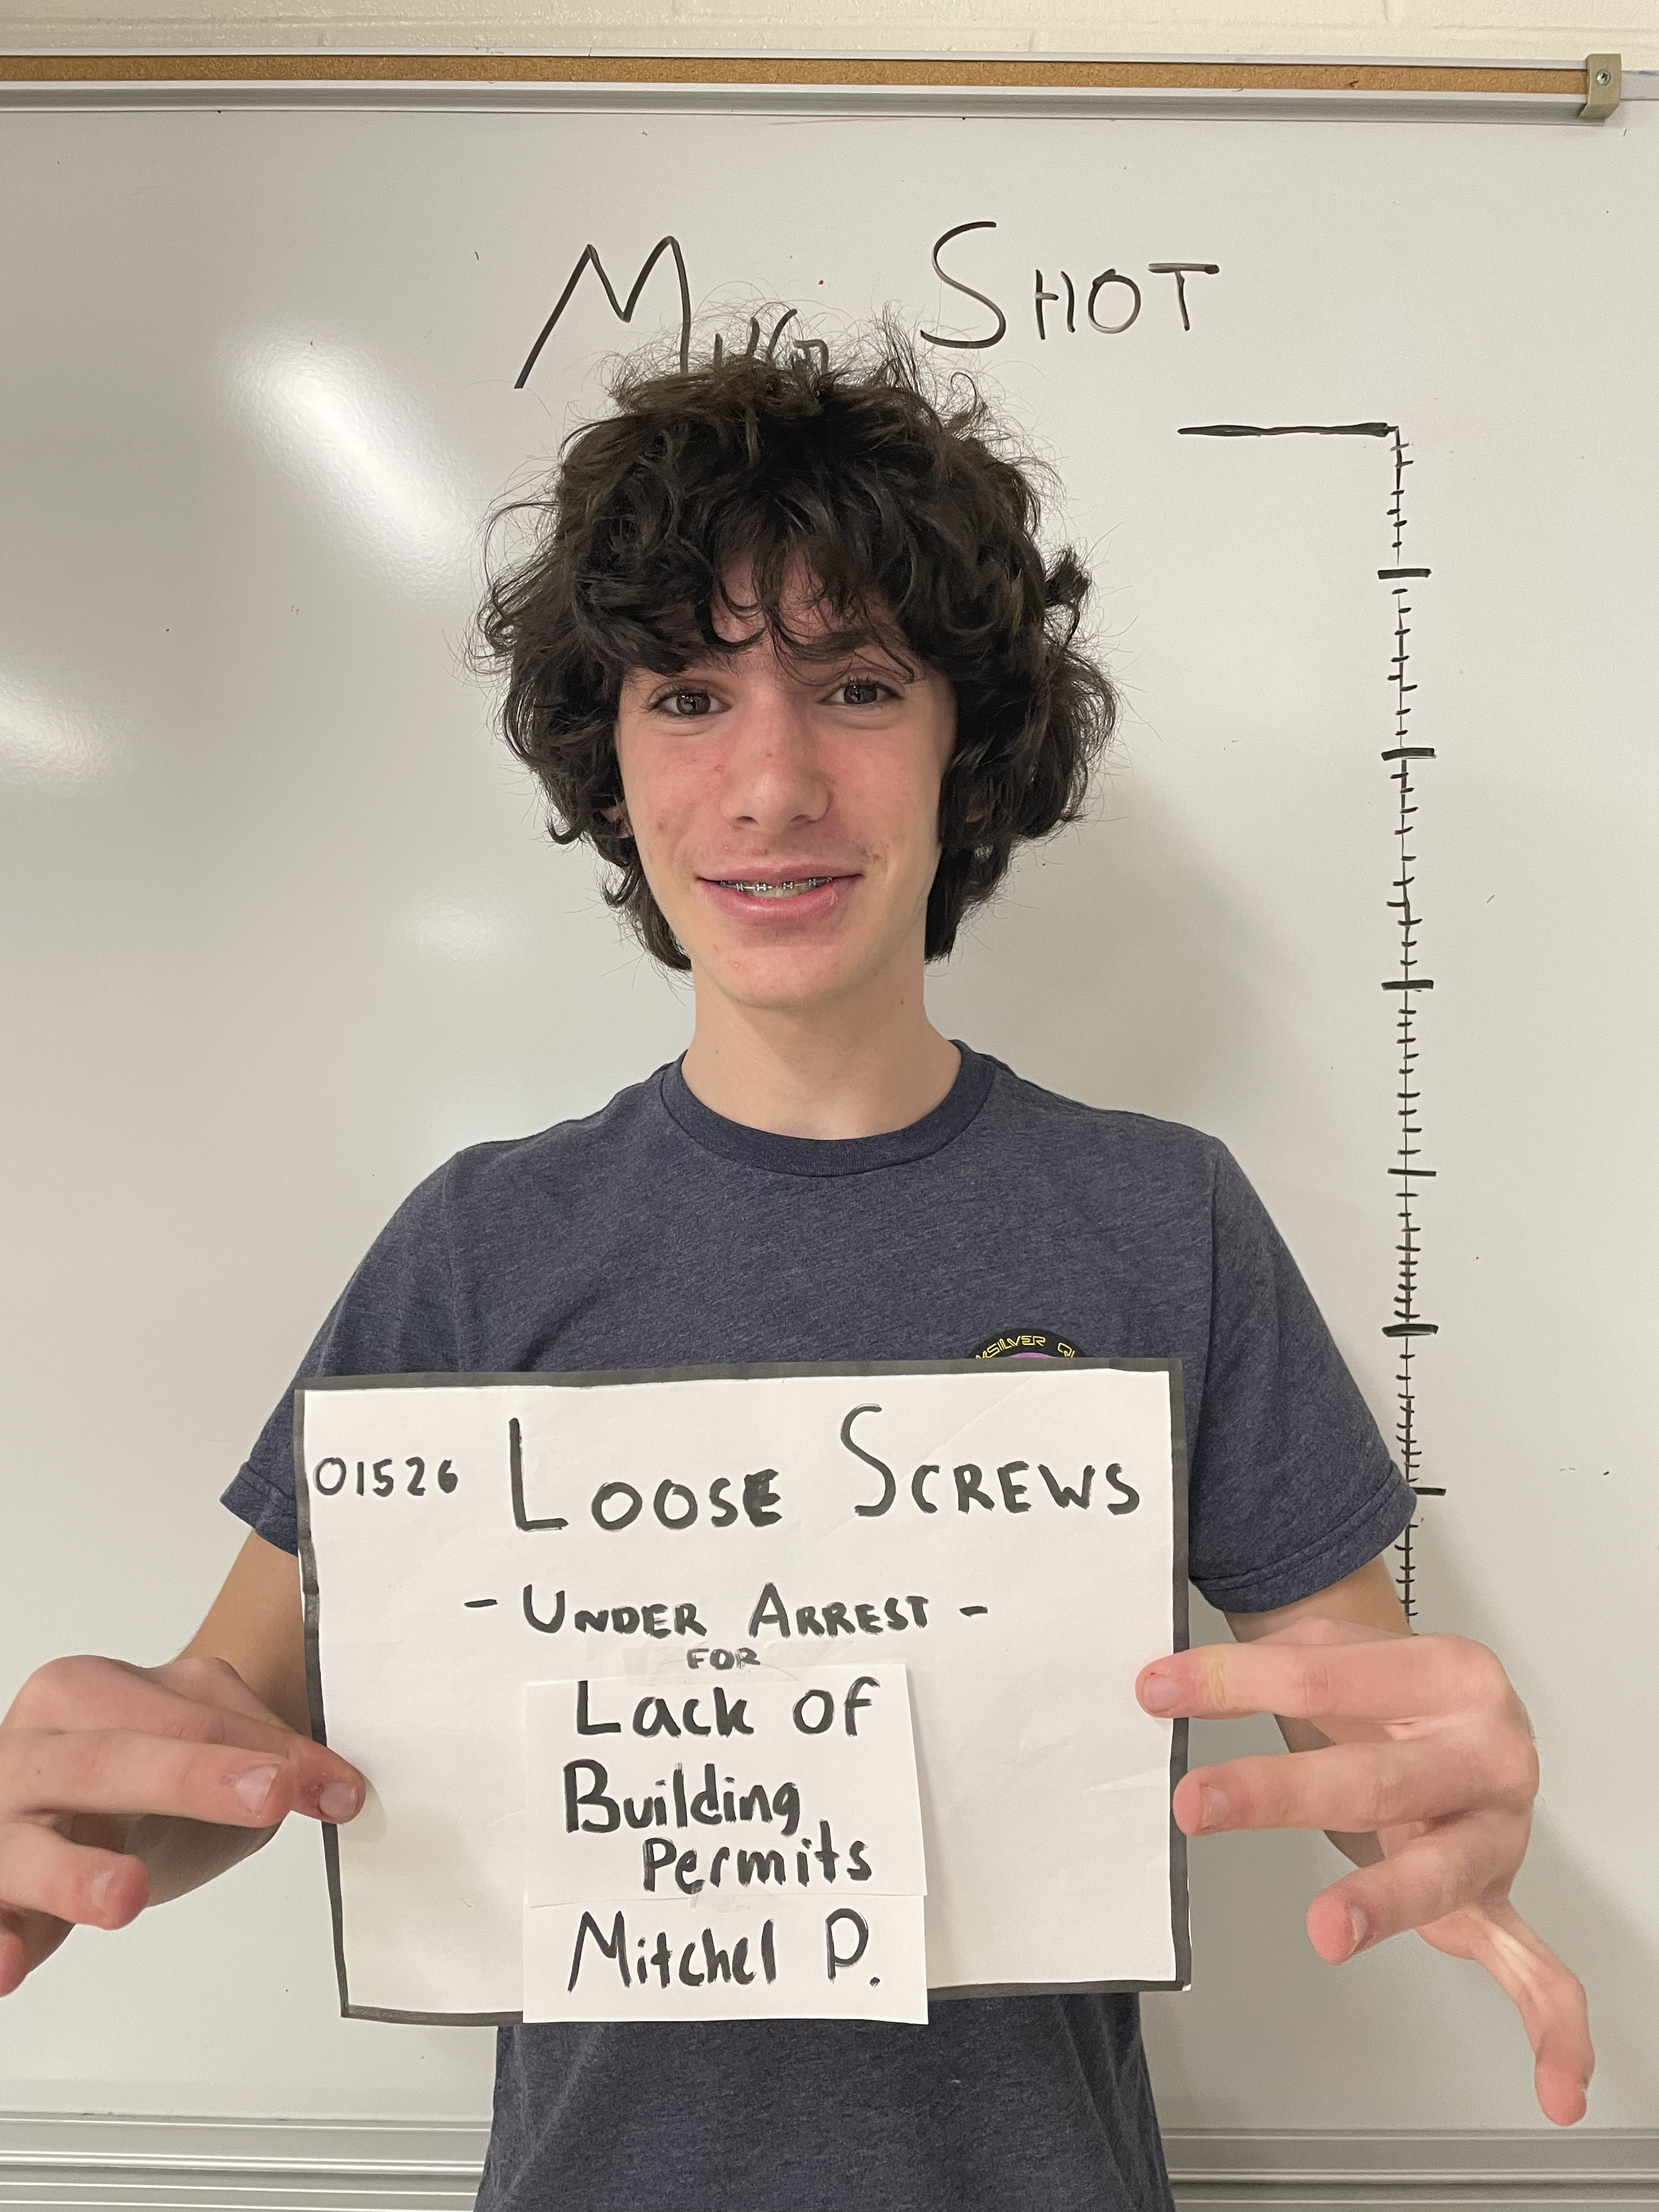 MUG SHOT
KSILVER QU
01526 LOOSE SCREWS
- UNDER ARREST -
FOR
Lack of
Building
Permits
Mitchel D.